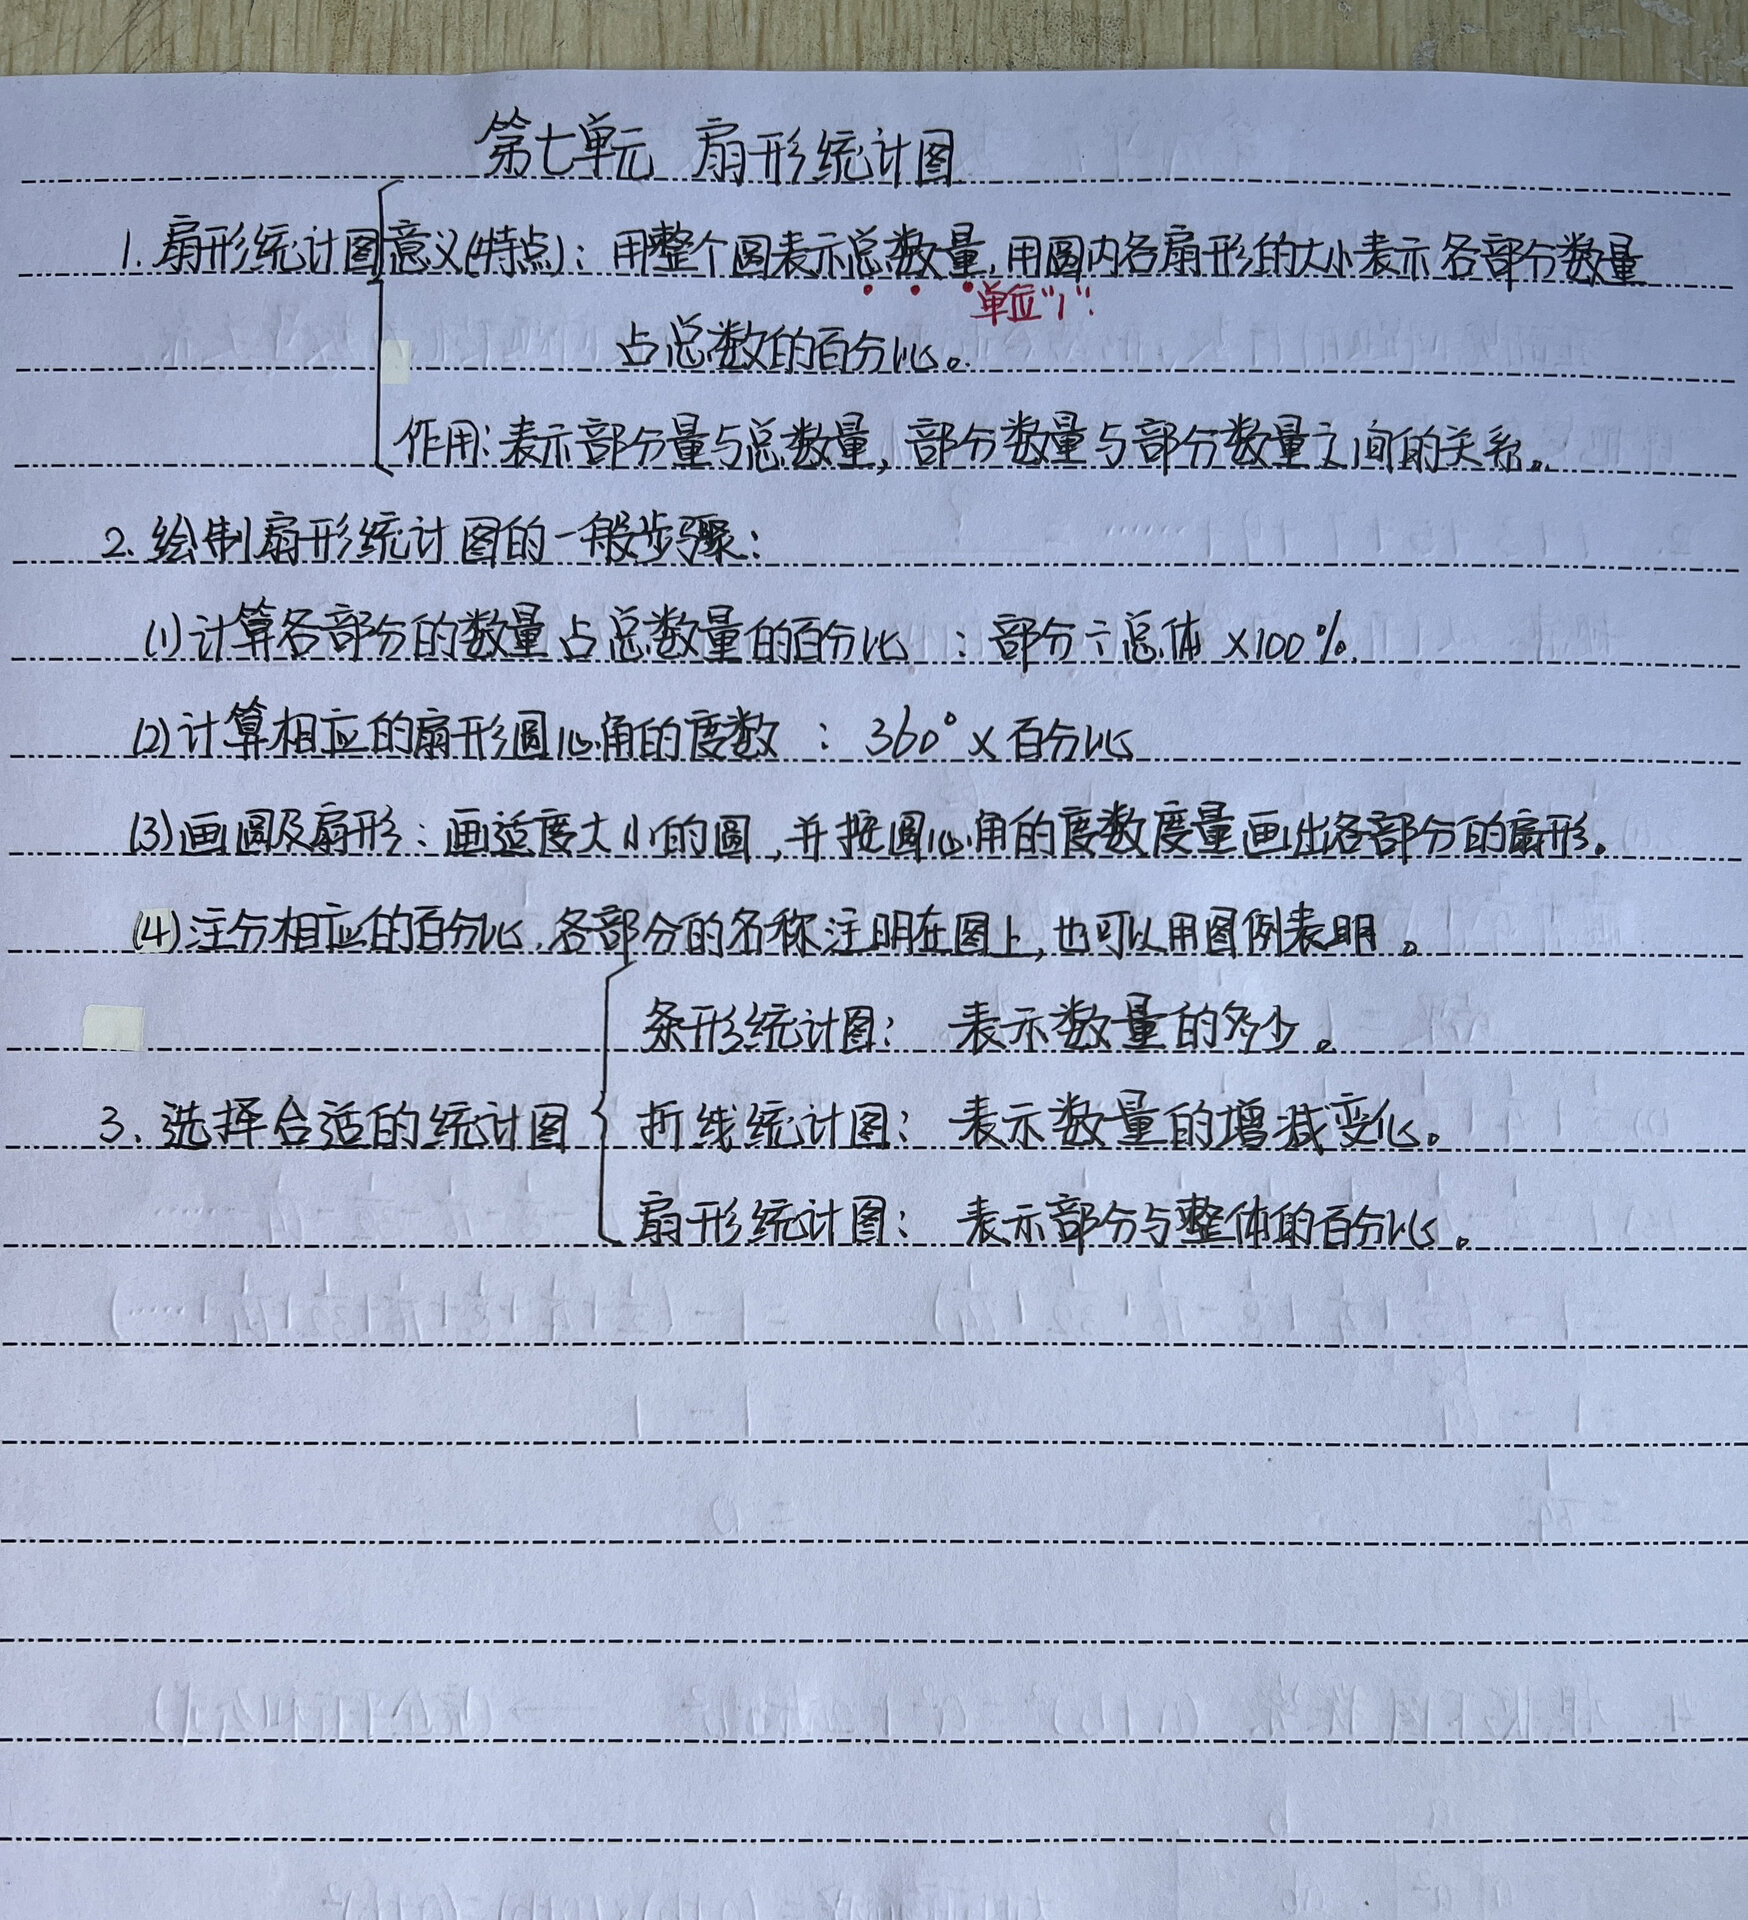 第七单元 扇形统计图
1.扇形统计图 意义(特点):用整个圆表示总数量,用圆内各扇形的大小表示各部分数量
单位"1"
占总数的百分比。
作用:表示部分量与总数量,部分数量与部分数量之间的关系。
2.绘制扇形统计图的一般步骤:
(1)计算各部分的数量占总数量的百分比 :部分÷总体×100%.
(2)计算相应的扇形圆心角的度数 :360°×百分比
(3)画圆及扇形:画适度大小的圆,并按圆心角的度数度量画出各部分的扇形。
(4)注分相应的百分比.各部分的名称注明在图上,也可以用图例表明。
条形统计图: 表示数量的多少。
3.选择合适的统计图 折线统计图: 表示数量的增减变化。
扇形统计图: 表示部分与整体的百分比。